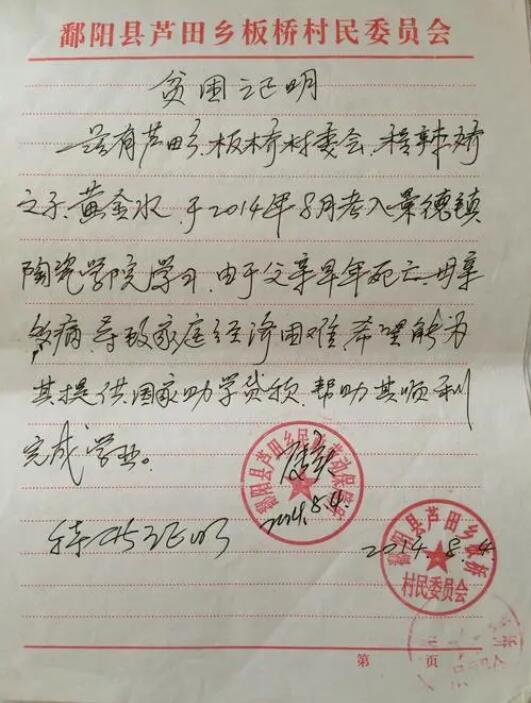 鄱阳县芦田乡板桥村民委员会
贫困证明
兹有芦田乡板桥村委会
之子黄金水,于2014年8月考入景德镇
陶瓷学院学习,由于父亲早年死亡,母亲
多病,导致家庭经济困难,希望能为
其提供国家助学贷款,帮助其顺利
完成学业。
鄱阳县芦田乡民政劳动保障所
2014.8.4
特此证明
2014.8.4
鄱阳县芦田乡板桥
村民委员会
第 页